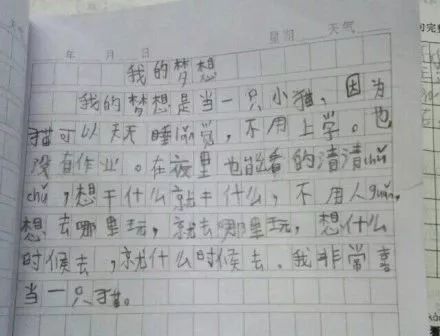 年 月 日 星期 天气
我的梦想
我的梦想是当一只小猫，因为
猫可以天天睡觉，不用上学。也
没有作业。在夜里也能看的清清chǔ
chǔ，想干什么就干什么，不用人guǎn，
想去哪里玩，就去哪里玩，想什么
时候去，就什么时候去。我非常喜
当一只猫。